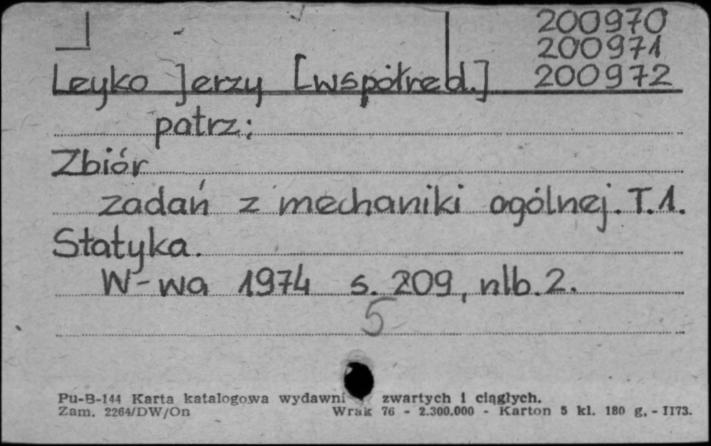 200970
200971
Leyko Jerzy [współred.] 200972
patrz:
Zbiór
zadań z mechaniki ogólnej. T.1.
Statyka.
W-wa 1974 s. 209, nlb. 2.
5
Pu-B-144 Karta katalogowa wydawni zwartych i ciągłych.
Zam. 2264/DW/On Wrak 76 - 2.300.000 - Karton 5 kl. 180 g. - II73.